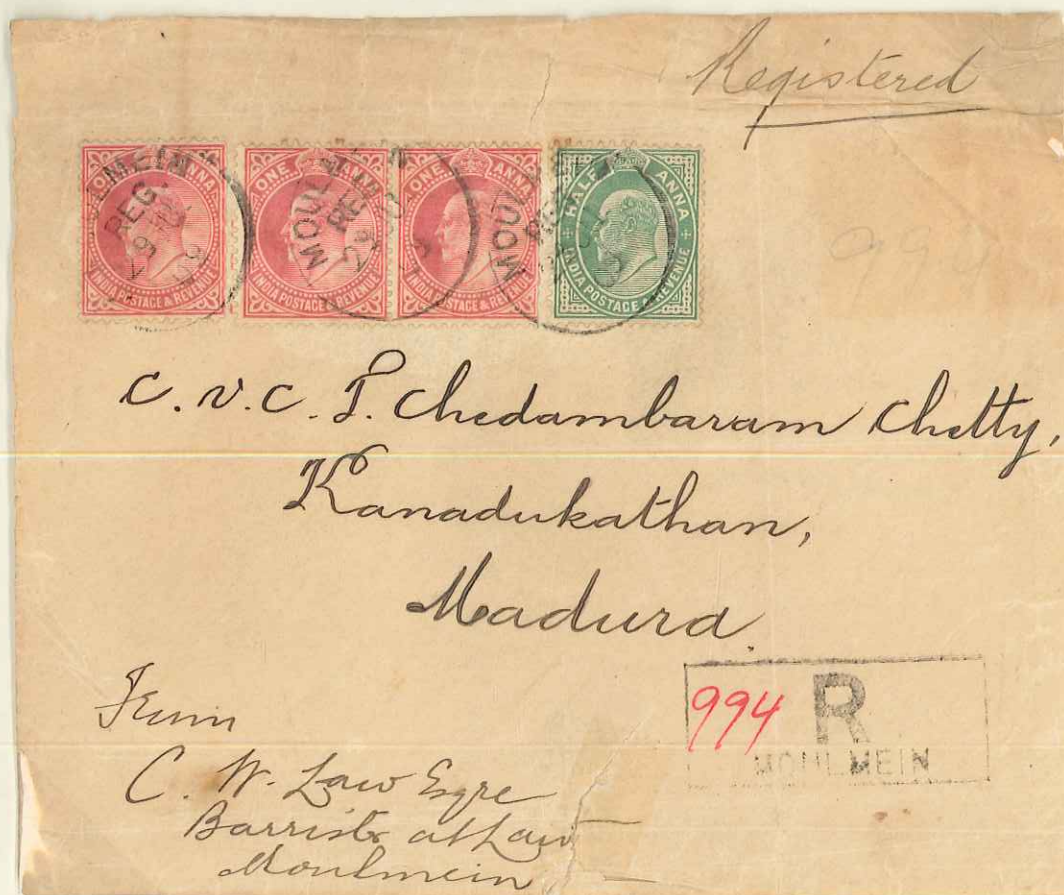 Registered
ONE ANNA
INDIA POSTAGE & REVENUE
MOULMEIN
REG.
ONE ANNA
INDIA POSTAGE & REVENUE
MOULMEIN
REG.
ONE ANNA
INDIA POSTAGE & REVENUE
HALF ANNA
INDIA POSTAGE & REVENUE
MOUL
REG.
994
C. V. C. T. Chedambaram Chetty,
Kanadukathan,
Madura.
994 R
MOULMEIN
From
C. W. Law Esqre
Barrister at Law
Moulmein